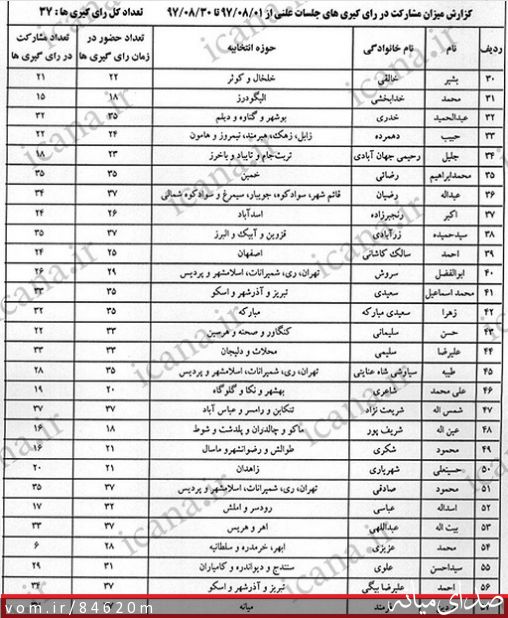 گزارش میزان مشارکت در رای گیری های جلسات علنی از ۹۷/۰۸/۰۱ تا ۹۷/۰۸/۳۰ تعداد کل رای گیری ها : ۳۷
ردیف نام نام خانوادگی حوزه انتخابیه تعداد حضور در زمان رای گیری ها تعداد مشارکت در رای گیری ها
۳۰ بشیر خالقی خلخال و کوثر ۲۲ ۲۱
۳۱ محمد خدابخشی الیگودرز ۱۸ ۱۵
۳۲ عبدالحمید خدری بوشهر و گناوه و دیلم ۳۵ ۳۲
۳۳ حبیب دهمرده زابل، زهک، هیرمند، نیمروز و هامون ۲۴ ۲۲
۳۴ جلیل رحیمی جهان آبادی تربت‌جام و تایباد و باخرز ۲۳ ۱۸
۳۵ محمدابراهیم رضائی خمین ۳۵ ۳۵
۳۶ عبداله رضیان قائم شهر، سوادکوه، جویبار، سیمرغ و سوادکوه شمالی ۳۷ ۳۴
۳۷ اکبر رنجبرزاده اسدآباد ۲۶ ۲۴
۳۸ سیدحمیده زرآبادی قزوین و آبیک و البرز ۳۷ ۳۵
۳۹ احمد سالک کاشانی اصفهان ۲۵ ۲۴
۴۰ ابوالفضل سروش تهران، ری، شمیرانات، اسلامشهر و پردیس ۲۹ ۲۶
۴۱ محمد اسماعیل سعیدی تبریز و آذرشهر و اسکو ۳۵ ۳۳
۴۲ زهرا سعیدی مبارکه مبارکه ۳۵ ۳۲
۴۳ حسن سلیمانی کنگاور و صحنه و هرسین ۳۳ ۲۲
۴۴ علیرضا سلیمی محلات و دلیجان ۳۳ ۳۳
۴۵ طیبه سیاوشی شاه عنایتی تهران، ری، شمیرانات، اسلامشهر و پردیس ۳۵ ۲۸
۴۶ علی محمد شاعری بهشهر و نکا و گلوگاه ۲۰ ۱۹
۴۷ شمس اله شریعت نژاد تنکابن و رامسر و عباس آباد ۳۷ ۳۷
۴۸ عین اله شریف پور ماکو و چالدران و پلدشت و شوط ۱۸ ۱۶
۴۹ محمود شکری طوالش و رضوانشهر و ماسال ۲۱ ۱۶
۵۰ حسینعلی شهریاری زاهدان ۲۱ ۲۰
۵۱ محمود صادقی تهران، ری، شمیرانات، اسلامشهر و پردیس ۳۷ ۳۵
۵۲ اسداله عباسی رودسر و املش ۳۲ ۱۷
۵۳ بیت اله عبداللهی اهر و هریس ۳۷ ۳۳
۵۴ محمد عزیزی ابهر، خرمدره و سلطانیه ۲۸ ۶
۵۵ سیداحسن علوی سنندج و دیواندره و کامیاران ۳۱ ۲۹
۵۶ احمد علیرضا بیگی تبریز و آذرشهر و اسکو ۳۷ ۳۴
میانه
صدای میانه
vom.ir/84620m
icana.ir